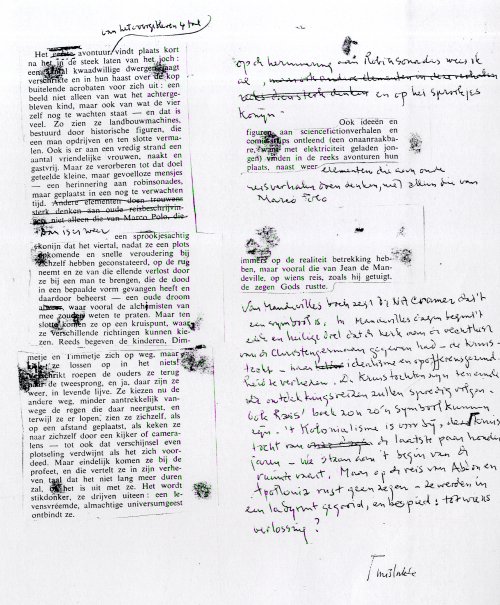 van het voorgekomen
Het eerste avontuur vindt plaats kort
na het in de steek laten van het joch :
een aantal kwaadwillige dwergen jaagt
verschrikte en in hun haast over de kop
buitelende acrobaten voor zich uit : een
beeld niet alleen van wat het achterge-
bleven kind, maar ook van wat de vier
zelf nog te wachten staat — en dat is
veel. Zo zien ze landbouwmachines,
bestuurd door historische figuren, die
een man opdrijven en ten slotte verma-
len. Ook is er aan een vredig strand een
aantal vriendelijke vrouwen, naakt en
gastvrij. Maar ze verorberen tot dat doel
geteelde kleine, maar gevoelloze mensjes
— een herinnering aan robinsonades,
maar geplaatst in een nog te verwachten
tijd. Andere elementen doen trouwens
sterk denken aan oude reisbeschrijvin-
gen, niet alleen die van Marco Polo, die
Dan is er weer
een sprookjesachtig
konijn dat het viertal, nadat ze een plots
opkomende en snelle veroudering bij
zichzelf hebben geconstateerd, op de rug
neemt en ze van die ellende verlost door
ze bij een man te brengen, die de dood
in een bepaalde vorm gevangen heeft en
daardoor beheerst — een oude droom
alweer, waar vooral de alchemisten van
mee zouden weten te praten. Maar ten
slotte komen ze op een kruispunt, waar
ze verschillende richtingen kunnen kie-
zen. Reeds begeven de kinderen, Dim-
metje en Timmetje zich op weg, maar
ze lossen op in het niets!
Verschrikt roepen de ouders ze terug
naar de tweesprong, en ja, daar zijn ze
weer, in levende lijve. Ze kiezen nu de
andere weg, minder aantrekkelijk van-
wege de regen die daar neergutst, en
terwijl ze er lopen, zien ze zichzelf, als
op een afstand geplaatst, als keken ze
naar zichzelf door een kijker of camera-
lens — tot ook dat verschijnsel even
plotseling verdwijnt als het zich voor-
deed. Maar eindelijk komen ze bij de
profeet, en die vertelt ze in zijn verhe-
ven taal dat het niet lang meer duren
zal, of het is uit met ze. Het wordt
stikdonker, ze drijven uiteen : een le-
vensvreemde, almachtige universumgeest
ontbindt ze.
op de herinnering aan Robinsonades wees ik
al, en op het sprookjes
konijn
Ook ideeën en
figuren, aan sciencefictionverhalen en
comicstrips ontleend (een onaanraakba-
re, want met elektriciteit geladen jon-
gen) vinden in de reeks avonturen hun
plaats, naast weer elementen die aan oude
reisverhalen doen denken, niet alleen die van
Marco Polo
immers op de realiteit betrekking heb-
ben, maar vooral die van Jean de Man-
deville, op wiens reis, zoals hij getuigt.
de zegen Gods rustte.
Van Mandevilles boek zegt Dr. N.A. Cramer dat 't
een symbool is. In Mandevilles dagen begint 't
de kerk aan de
van de Christengemeenten gegeven had – de kruis-
tocht – idealisme en opofferingsgezind-
heid te verliezen. D. kruistochten zijn ten einde
de ontdekkingsreizen zullen spoedig volgen.
ook Raes' boek zou zo'n symbool kunnen
zijn. 't Kolonialisme is voorbij, de kruis
tocht van de laatste paar honderd
jaren – we staan aan 't begin van de
ruimtevaart. Maar op de reis van
Apollonia rust geen zegen – ze werden in
een labyrint gegooid, en bespied : tot wiens
verlossing?